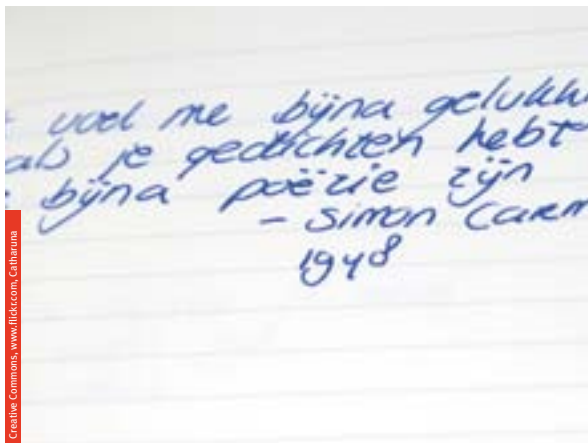 voel me bijna gelukk
als je gedichten hebt
bijna poëzie zijn
- Simon Carm
1948
Creative Commons, www.flickr.com, Catharuna